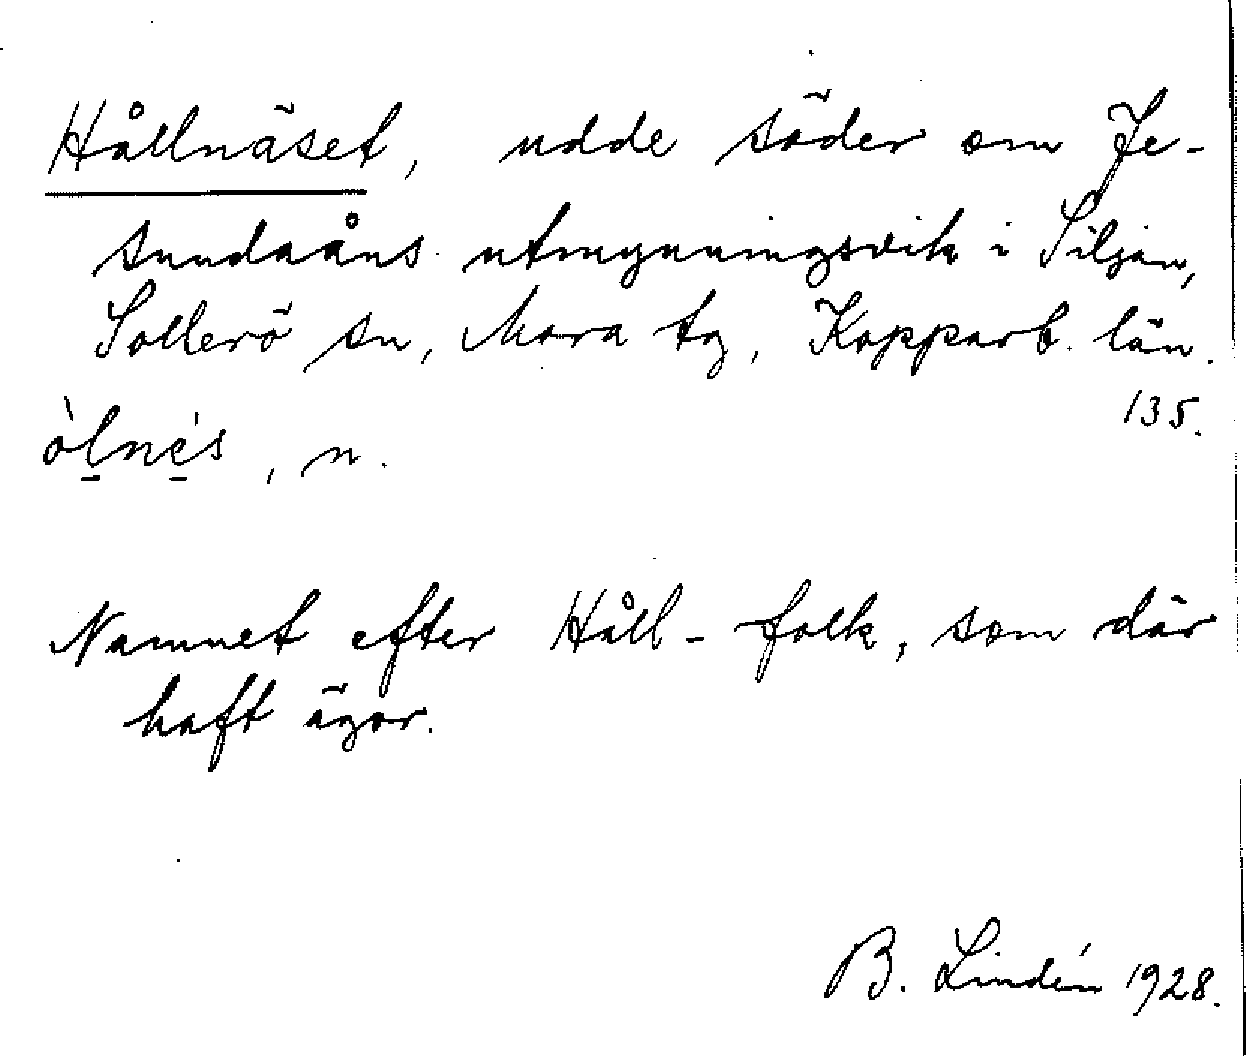 Hållnäset, udde söder om Je-
sundaåns utmynningsvik i Siljan,
Sollerö sn, Mora tg, Kopparb. län.
135.
òḷnẹ́s, n.
Namnet efter Håll-folk, som där
haft ägor.
B. Lindén 1928.